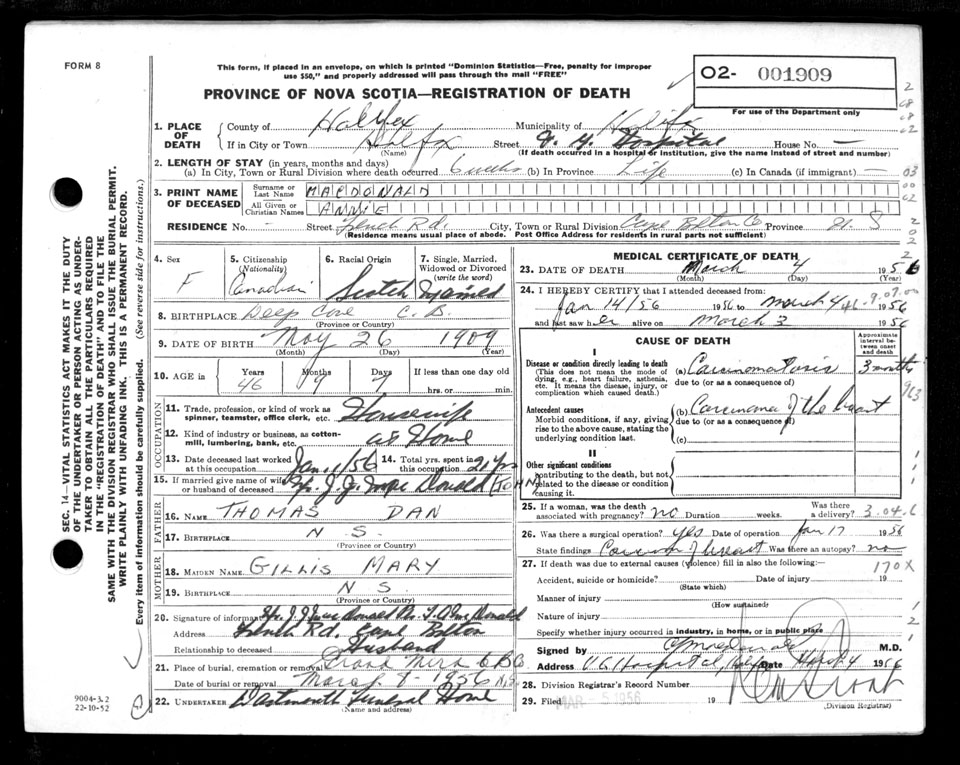 FORM 8
This form, if placed in an envelope, on which is printed "Dominion Statistics—Free, penalty for improper
use $50," and properly addressed will pass through the mail "FREE"
PROVINCE OF NOVA SCOTIA—REGISTRATION OF DEATH
O2- 001909
For use of the Department only
1. PLACE OF DEATH
County of Halifax Municipality of Halifax
If in City or Town Halifax Street Hospital House No. —
(Name) (If death occurred in a hospital or institution, give the name instead of street and number)
2. LENGTH OF STAY (in years, months and days)
(a) In City, Town or Rural Division where death occurred 6 weeks (b) In Province Life (c) In Canada (if immigrant) —
3. PRINT NAME OF DECEASED
Surname or Last Name MACDONALD
All Given or Christian Names ANNIE
RESIDENCE No. - Street Rd. City, Town or Rural Division Cape Breton Co Province N. S
(Residence means usual place of abode. Post Office Address for residents in rural parts not sufficient)
4. Sex F
5. Citizenship (Nationality) Canadian
6. Racial Origin Scotch
7. Single, Married, Widowed or Divorced (write the word) Married
8. BIRTHPLACE Deep Cove C. B.
(Province or Country)
9. DATE OF BIRTH May 26 1909
(Month) (Day) (Year)
10. AGE in Years 46 Months 9 Days 7 If less than one day old hrs. or min.
OCCUPATION
11. Trade, profession, or kind of work as spinner, teamster, office clerk, etc. Housewife
12. Kind of industry or business, as cotton-mill, lumbering, bank, etc. at Home
13. Date deceased last worked at this occupation Jan 11/56
14. Total yrs. spent in this occupation 21 yrs
15. If married give name of wife or husband of deceased J. J. Mac Donald (JOHN)
FATHER
16. NAME THOMAS DAN
17. BIRTHPLACE N S.
(Province or Country)
MOTHER
18. MAIDEN NAME GILLIS MARY
19. BIRTHPLACE N S.
(Province or Country)
20. Signature of informant
Address Rd. Cape Breton
Relationship to deceased Husband
21. Place of burial, cremation or removal Grand Mira C.B.Co.
Date of burial or removal March 8 - 1956 N.S.
22. UNDERTAKER Dartmouth Funeral Home
(Name and address)
MEDICAL CERTIFICATE OF DEATH
23. DATE OF DEATH March 4 1956
(Month) (Day) (Year)
24. I HEREBY CERTIFY that I attended deceased from:
Jan 14/56 1956 to March 4 1956
and last saw her alive on March 3 1956
CAUSE OF DEATH
Approximate interval between onset and death
I
Disease or condition directly leading to death
(This does not mean the mode of dying, e.g., heart failure, asthenia, etc. It means the disease, injury, or complication which caused death.)
(a) Carcinomatosis 3 months
due to (or as a consequence of)
Antecedent causes
Morbid conditions, if any, giving rise to the above cause, stating the underlying condition last.
(b) Carcinoma of the breast
due to (or as a consequence of)
(c)
II
Other significant conditions
contributing to the death, but not related to the disease or condition causing it.
25. If a woman, was the death associated with pregnancy? no Duration weeks. Was there a delivery?
26. Was there a surgical operation? Yes Date of operation Jan 17 1956
State findings Carcinoma of breast Was there an autopsy? no
27. If death was due to external causes (violence) fill in also the following:— 170X
Accident, suicide or homicide? Date of injury 19
Manner of injury
(How sustained)
Nature of injury
Specify whether injury occurred in industry, in home, or in public place
Signed by M.D.
Address Hospital, Halifax Date March 4 1956
28. Division Registrar's Record Number
29. Filed MAR 5 1956 19
(Division Registrar)
SEC. 14—VITAL STATISTICS ACT MAKES IT THE DUTY
OF THE UNDERTAKER OR PERSON ACTING AS UNDER-
TAKER TO OBTAIN ALL THE PARTICULARS REQUIRED
IN THE "REGISTRATION OF DEATH" AND TO FILE THE
SAME WITH THE DIVISION REGISTRAR WHO SHALL ISSUE THE BURIAL PERMIT.
WRITE PLAINLY WITH UNFADING INK. THIS IS A PERMANENT RECORD.
Every item of information should be carefully supplied. (See reverse side for instructions.)
9004-3.2
22-10-52